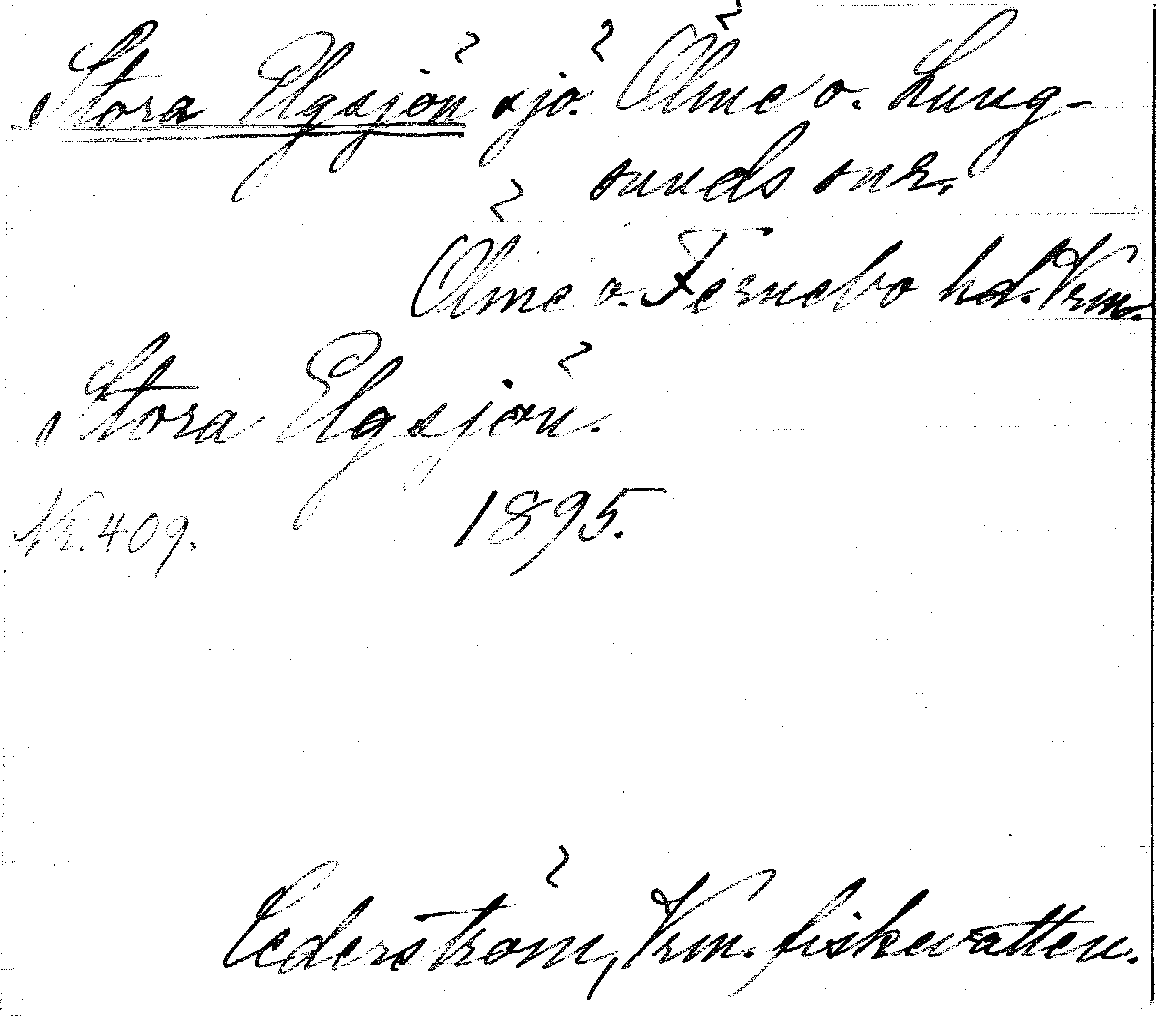 Stora Elgsjön sjö. Ölme o. Lung-
sunds snr.
Ölme o. Fernebo hd. Vrm.
Stora Elgsjön.
Nr. 409. 1895.
Cederström, Vrm. fiskevatten.